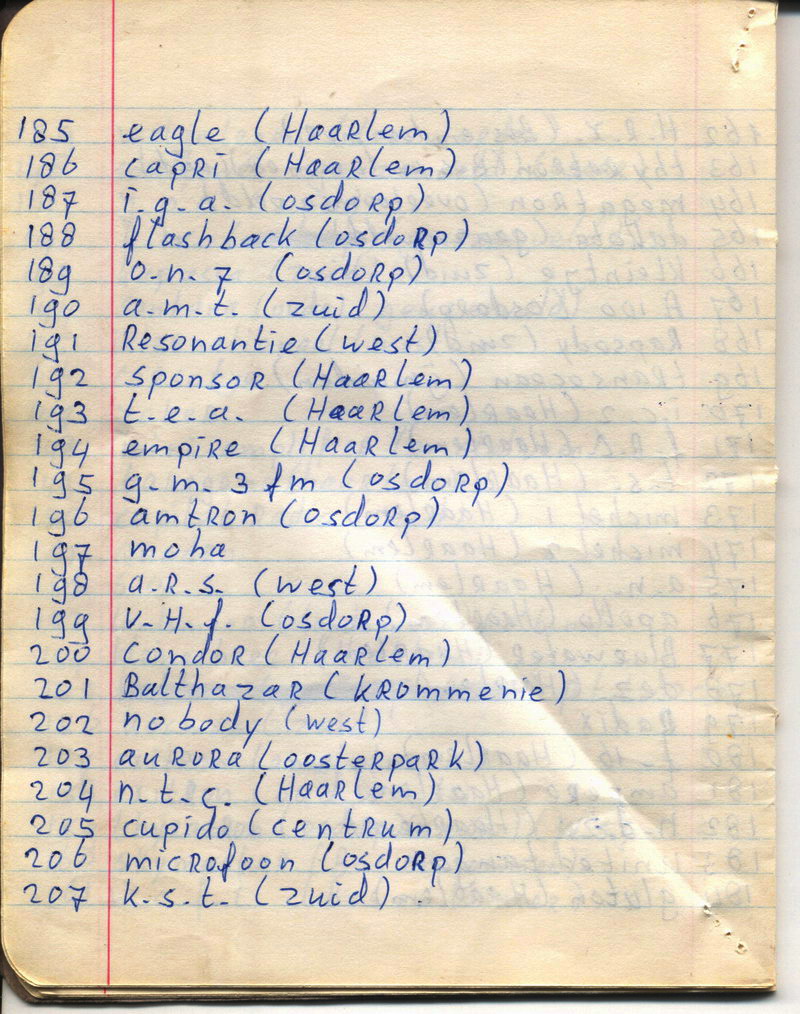 185 eagle (HaaRlem)
186 capRi (HaaRlem)
187 i.g.a. (osdoRp)
188 flashback (osdoRp)
189 o.n.7 (osdoRp)
190 a.m.t. (zuid)
191 Resonantie (west)
192 sponsoR (HaaRlem)
193 t.e.a. (HaaRlem)
194 empiRe (HaaRlem)
195 g.m. 3 fm (osdoRp)
196 amtRon (osdoRp)
197 moha
198 a.R.s. (west)
199 V.H.f. (osdoRp)
200 condoR (HaaRlem)
201 BalthazaR (kRommenie)
202 nobody (west)
203 auRoRa (oosteRpaRk)
204 n.t.c. (HaaRlem)
205 cupido (centRum)
206 micRofoon (osdoRp)
207 k.s.t. (zuid)